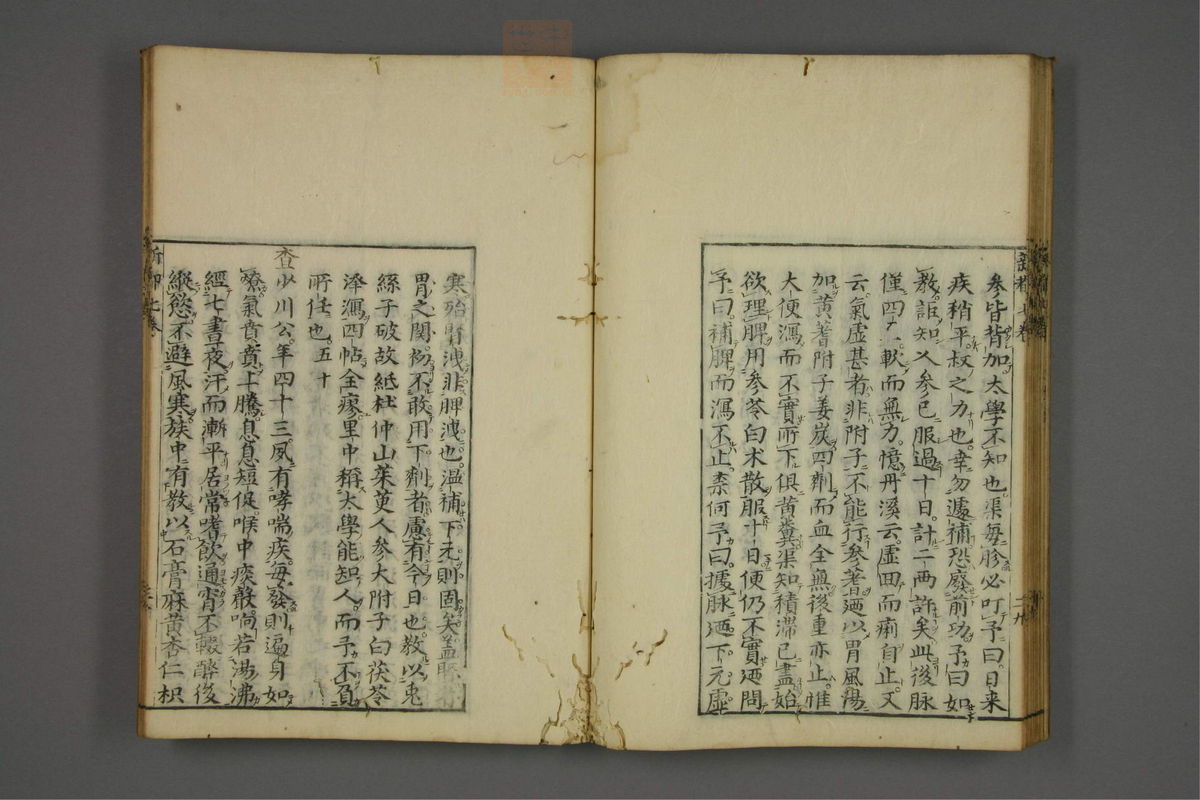 參皆背加太學不知也渠每胗必叮予曰日来
疾稍平叔之力也幸勿遽補恐廢前功予曰如
教詎知人參已服過十日計二兩許矣此後脉
僅四一軟而無力憶丹溪云虛回而痢自止又
云氣虛甚者非附子不能行參蓍廼以胃風湯
加黃蓍附子姜炭四劑而血全無後重亦止惟
大便瀉而不實所下俱黃糞渠知積滯已盡始
欲理脾用參苓白术散服十日便仍不實廼問
予曰補脾而瀉不止柰何予曰據脉廼下元虛
寒殆腎洩非脾洩也溫補下元則固矣盖腎者
胃之關初不敢用下劑者慮有今日也教以兎
絲子破故紙杜仲山茱萸人參大附子白茯苓
澤瀉四帖全瘳里中稱太學能知人而予不負
所任也五十
查少川公年四十三夙有哮喘疾每發則遍身如
燎氣賁賁上騰息息短促喉中痰聲响若湯沸
經七晝夜汗而漸平居常嗜飲通宵不輟醉後
縱慾不避風寒族中有教以石膏麻黃杏仁枳